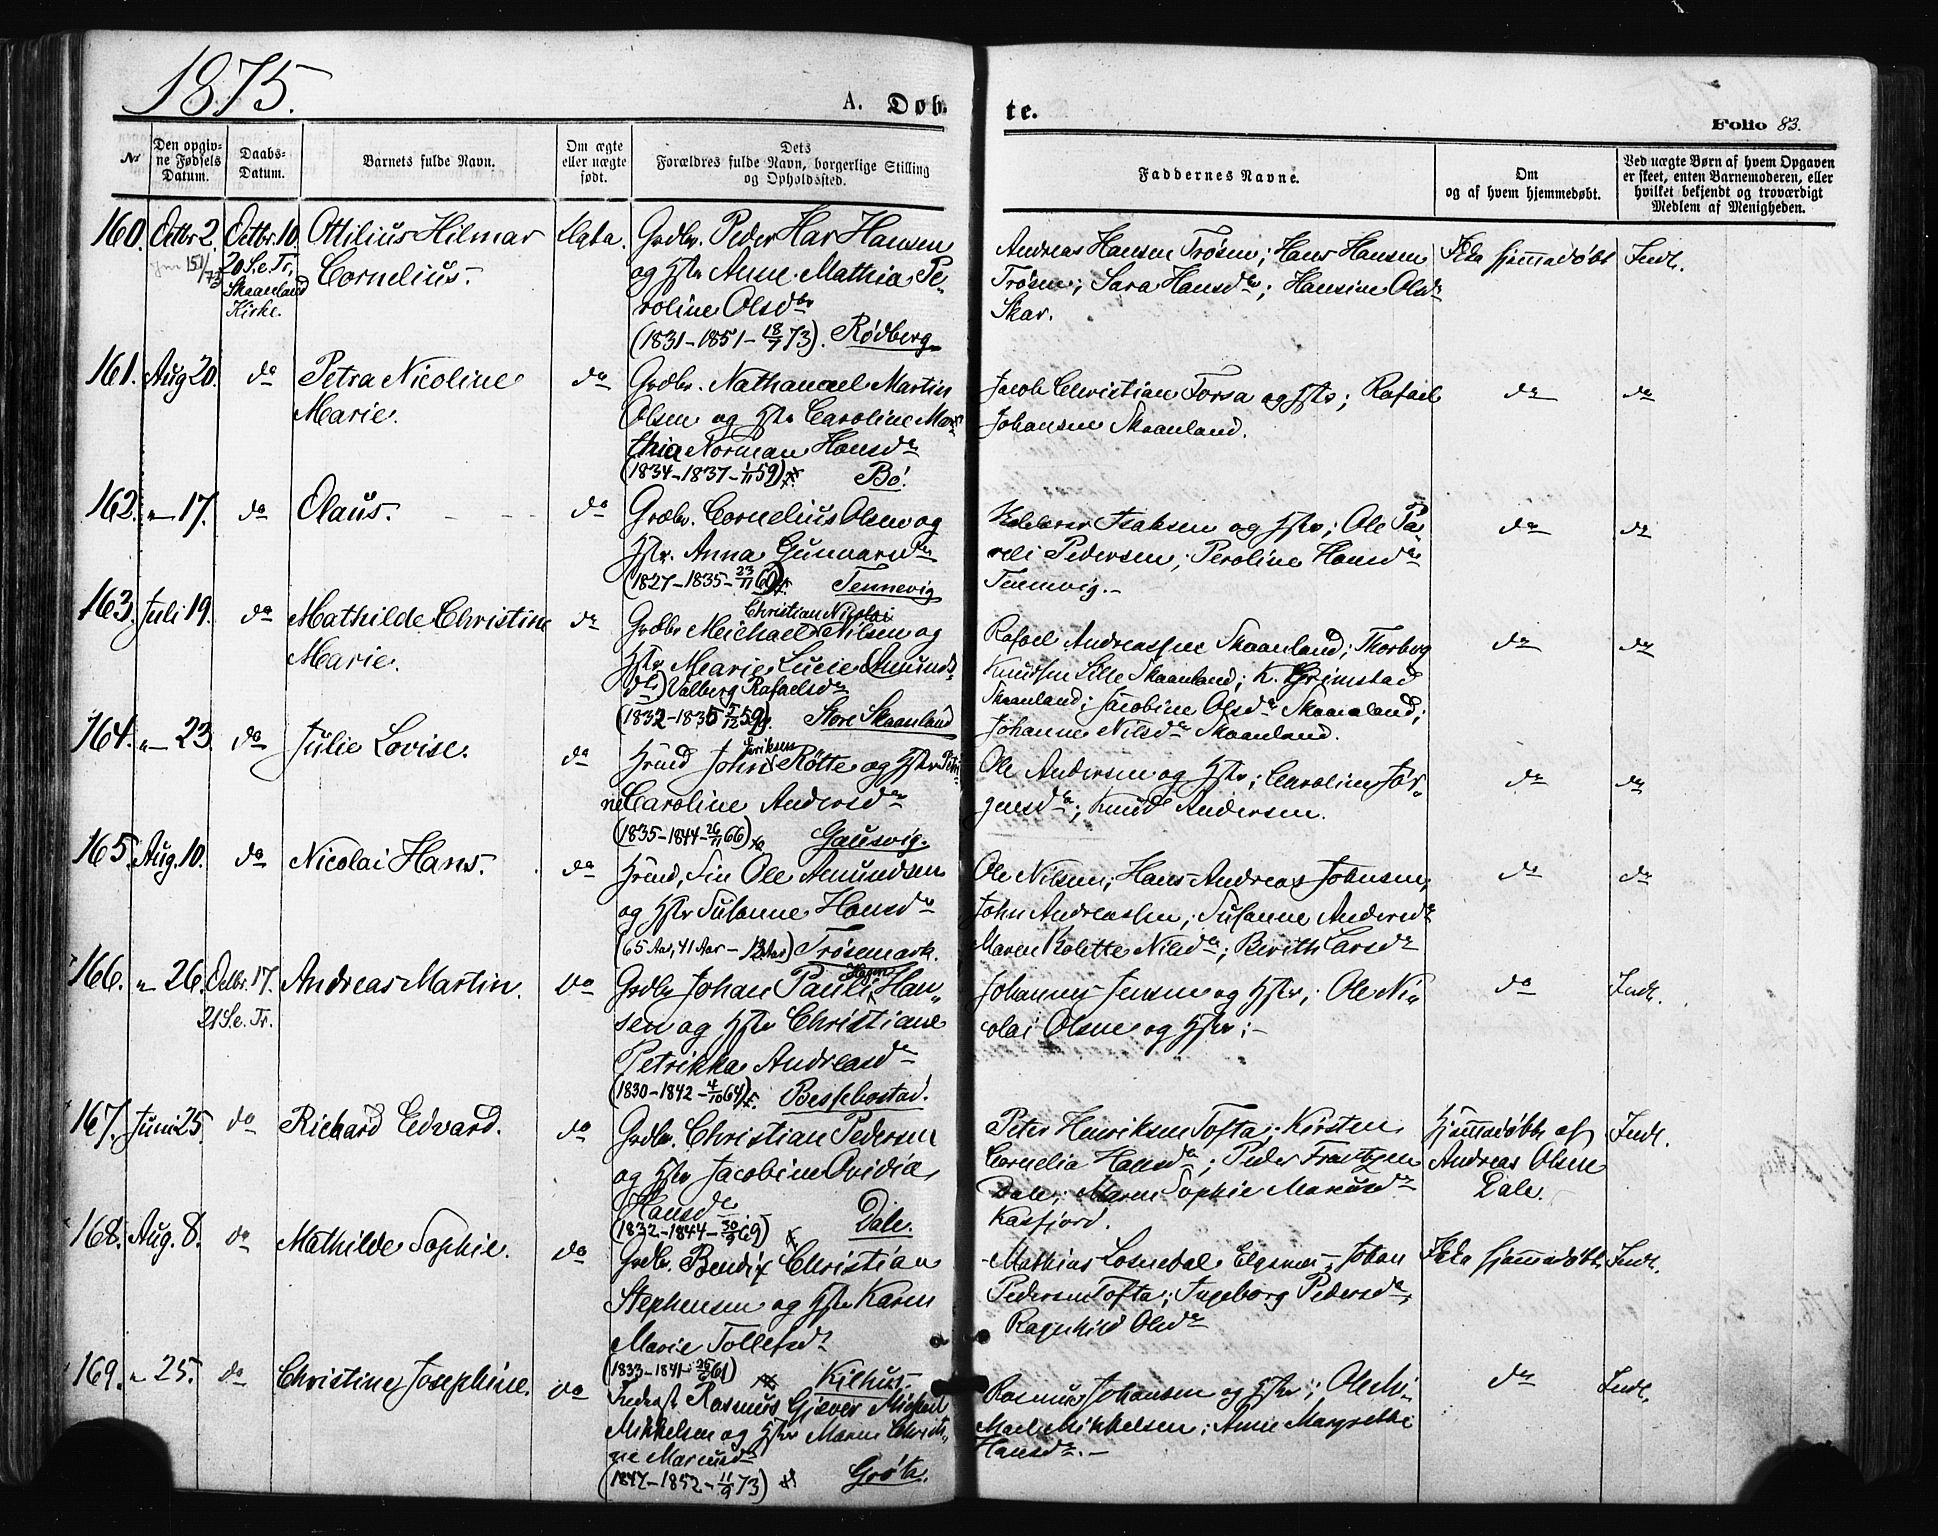 1875.
A. Døb-
te.
Folio 83.
Nr.
Den opgiv-
ne Fødsels
Datum.
Daabs-
Datum.
Barnets fulde Navn.
Om ægte
eller uægte
født.
Dets
Forældres fulde Navn, borgerlige Stilling
og Opholdssted.
Faddernes Navne.
Om
og af hvem hjemmedøbt.
Ved uægte Børn af hvem Opgaven
er skeet, enten Barnemoderen, eller
hvilket bekjendt og troværdigt
Medlem af Menigheden.
160. Octbr 2. Octbr. 10.
20 S. e. Tr.
Skaanland
Kirke.
Ottilius Hilmar
Cornelius.
Ægte.
Grdbr. Peder Har Hansen
og Hstr Anne Mathia Pe-
roline Olsdtr
(1831-1851-18/7 73). Rødberg
Andreas Hansen Trøsen; Hans Hansen
Trøsen; Sara Hansdtr; Hansine Olsdtr
Skar.
Ikke hjemmedøbt
Indl.
161. Aug 20. do
Petra Nicoline
Marie.
do
Grdbr. Nathanael Martin
Olsen og Hstr Caroline Mar-
thia Norman Hansdtr
(1834-1837-1/11 59) Bø.
Jacob Christian Forsa og Hstr; Rafael
Johansen Skaanland.
do
do
162. " 17. do
Olaus.
do
Grdbr. Cornelius Olsen og
Hstr. Anna Gunnarsdtr
(1827-1835-23/11 60) Tennevig
Isaksen og Hstr; Ole Pa-
reli Pedersen; Peroline Hansdtr
Tennevig.-
do
do
163. Juli 19. do
Mathilde Christine
Marie.
do
Christian Nicolai
Grdbr Meichael Nilsen og
Hstr Marie Lucie (Amunds-
dtr) Valberg Rafaelsdtr
(1832-1835 59) Store Skaanland
Rafael Andreassen Skaanland; Thorberg
Knudsen Lille Skaanland; K. Grimstad
Skaanland; Jacobine Olsdtr Skaanland;
Johanne Nilsdtr Skaanland.
do
do
164. " 23. do
Julie Lovise.
do
Eriksen
Hrmd John Røtte og Hstr Petri-
ne Caroline Andersdtr
(1835-1844-26/11 66) Gausvig.
Ole Andersen og Hstr; Caroline Jør-
gensdtr; Knud Andersen.
do
do
165. Aug. 10. do
Nicolai Hans.
do
Hrmd, Fin Ole Amundsen
og Hstr Susanne Hansdtr
(65 Aar, 41 Aar - 13 Aar) Trøsemark.
Ole Nilsen; Hans Andreas Johnsen,
John Andreassen; Susanne Andersdtr
Maren Kolette Nilsdtr; Berith Larsdtr
do
do
166. " 26. Octbr. 17.
21 S. e. Tr.
Andreas Martin.
do
Hagen
Grdbr Johan Pauli Han-
sen og Hstr Christiane
Petrikka Andreasdtr
(1830-1842-4/10 64) Bessebostad.
Johannes Jensen og Hstr; Ole Ni-
colai Olsen og Hstr;-
do
Indl.
167. Juni 25. do
Richard Edvard.
do
Grdbr. Christian Pedersen
og Hstr Jacobine Ovidia
Hansdtr
(1832-1844-30/9 69) Dale.
Peter Henriksen Tofta; Kirsten
Cornelia Hansdtr; Peder Frantzen
Dale; Maren Sophie Mariusdtr
Kasfjord.
Hjemmedøbt af
Andreas Olsen
Dale.
Indl.
168. Aug. 8. do
Mathilde Sophie.
do
Grdbr. Bendix Christian
Stephensen og Hstr Karen
Marie Tollefsdtr
(1833-1841 61) Kilhus
Mathias Losnedal Elgsnes; Johan
Pedersen Tofta; Ingeborg Pedersdtr,
Ragnhild Olsdtr
Ikke hjemmedøbt.
Indl.
169. " 25. do
Christine Josephine.
do
Inderst Rasmus Giæver Michael
Mikkelsen og Hstr Maren Christi-
ne Mariusdtr
(1847-1852-11/9 73) Grøta.
Rasmus Johansen og Hstr; Ole Mi-
Mikkelsen; Anne Margrethe
Hansdtr.-
do
Indl.